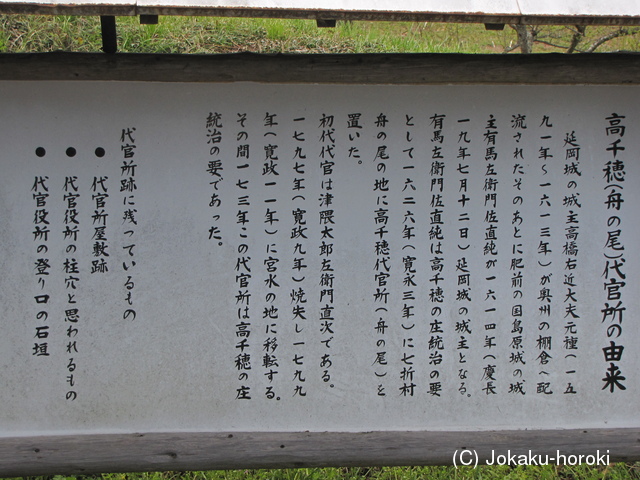 高千穂(舟の尾)代官所の由来
延岡城の城主高橋右近大夫元種(一五
九一年～一六一三年)が奥州の棚倉へ配
流されたそのあとに肥前の国島原城の城
主有馬左衛門佐直純が一六一四年(慶長
一九年七月十二日)延岡城の城主となる。
有馬左衛門佐直純は高千穂の庄統治の要
として一六二六年(寛永三年)に七折村
舟の尾の地に高千穂代官所(舟の尾)を
置いた。
初代代官は津隈太郎左衛門直次である。
一七九七年(寛政九年)焼失し一七九九
年(寛政一一年)に宮水の地に移転する。
その間一七三年この代官所は高千穂の庄
統治の要であった。
代官所跡に残っているもの
●代官所屋敷跡
●代官役所の柱穴と思われるもの
●代官役所の登り口の石垣
(C) Jokaku-horoki